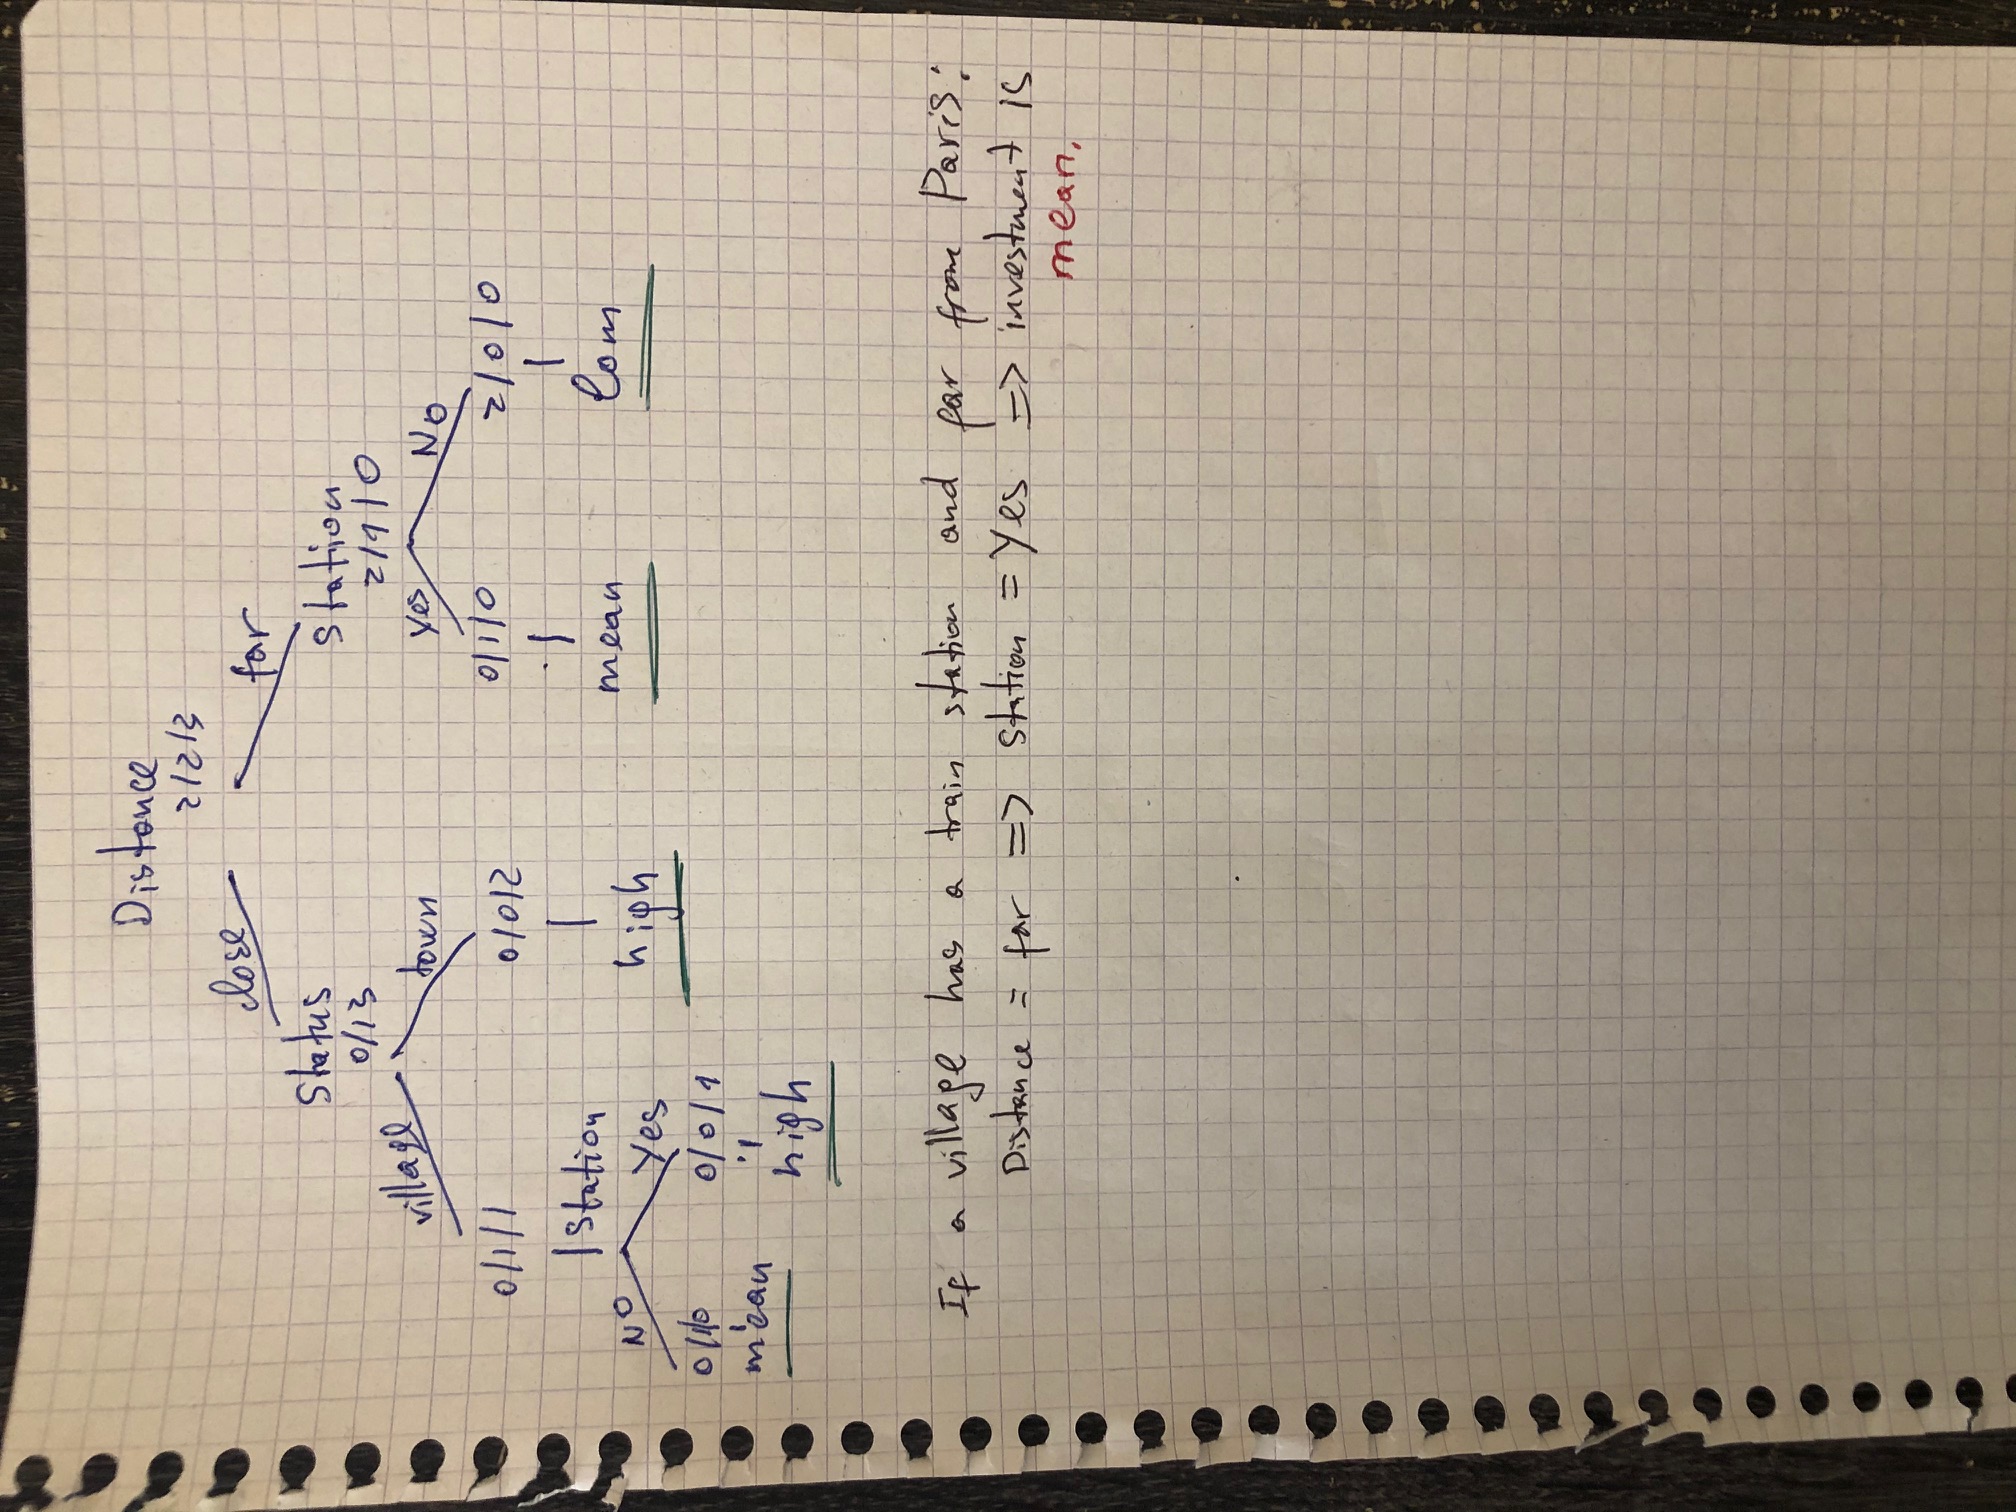 Distance
2/2/3
close
far
Status
0/13
Station
2/1/0
village
town
Yes
No
0/1/1
0/0/2
0/1/0
2/0/0
Station
high
mean
low
NO
Yes
0/1/0
0/0/1
mean
high
If a village has a train station and far from Paris:
Distance = far => Station = Yes => investment is
mean.